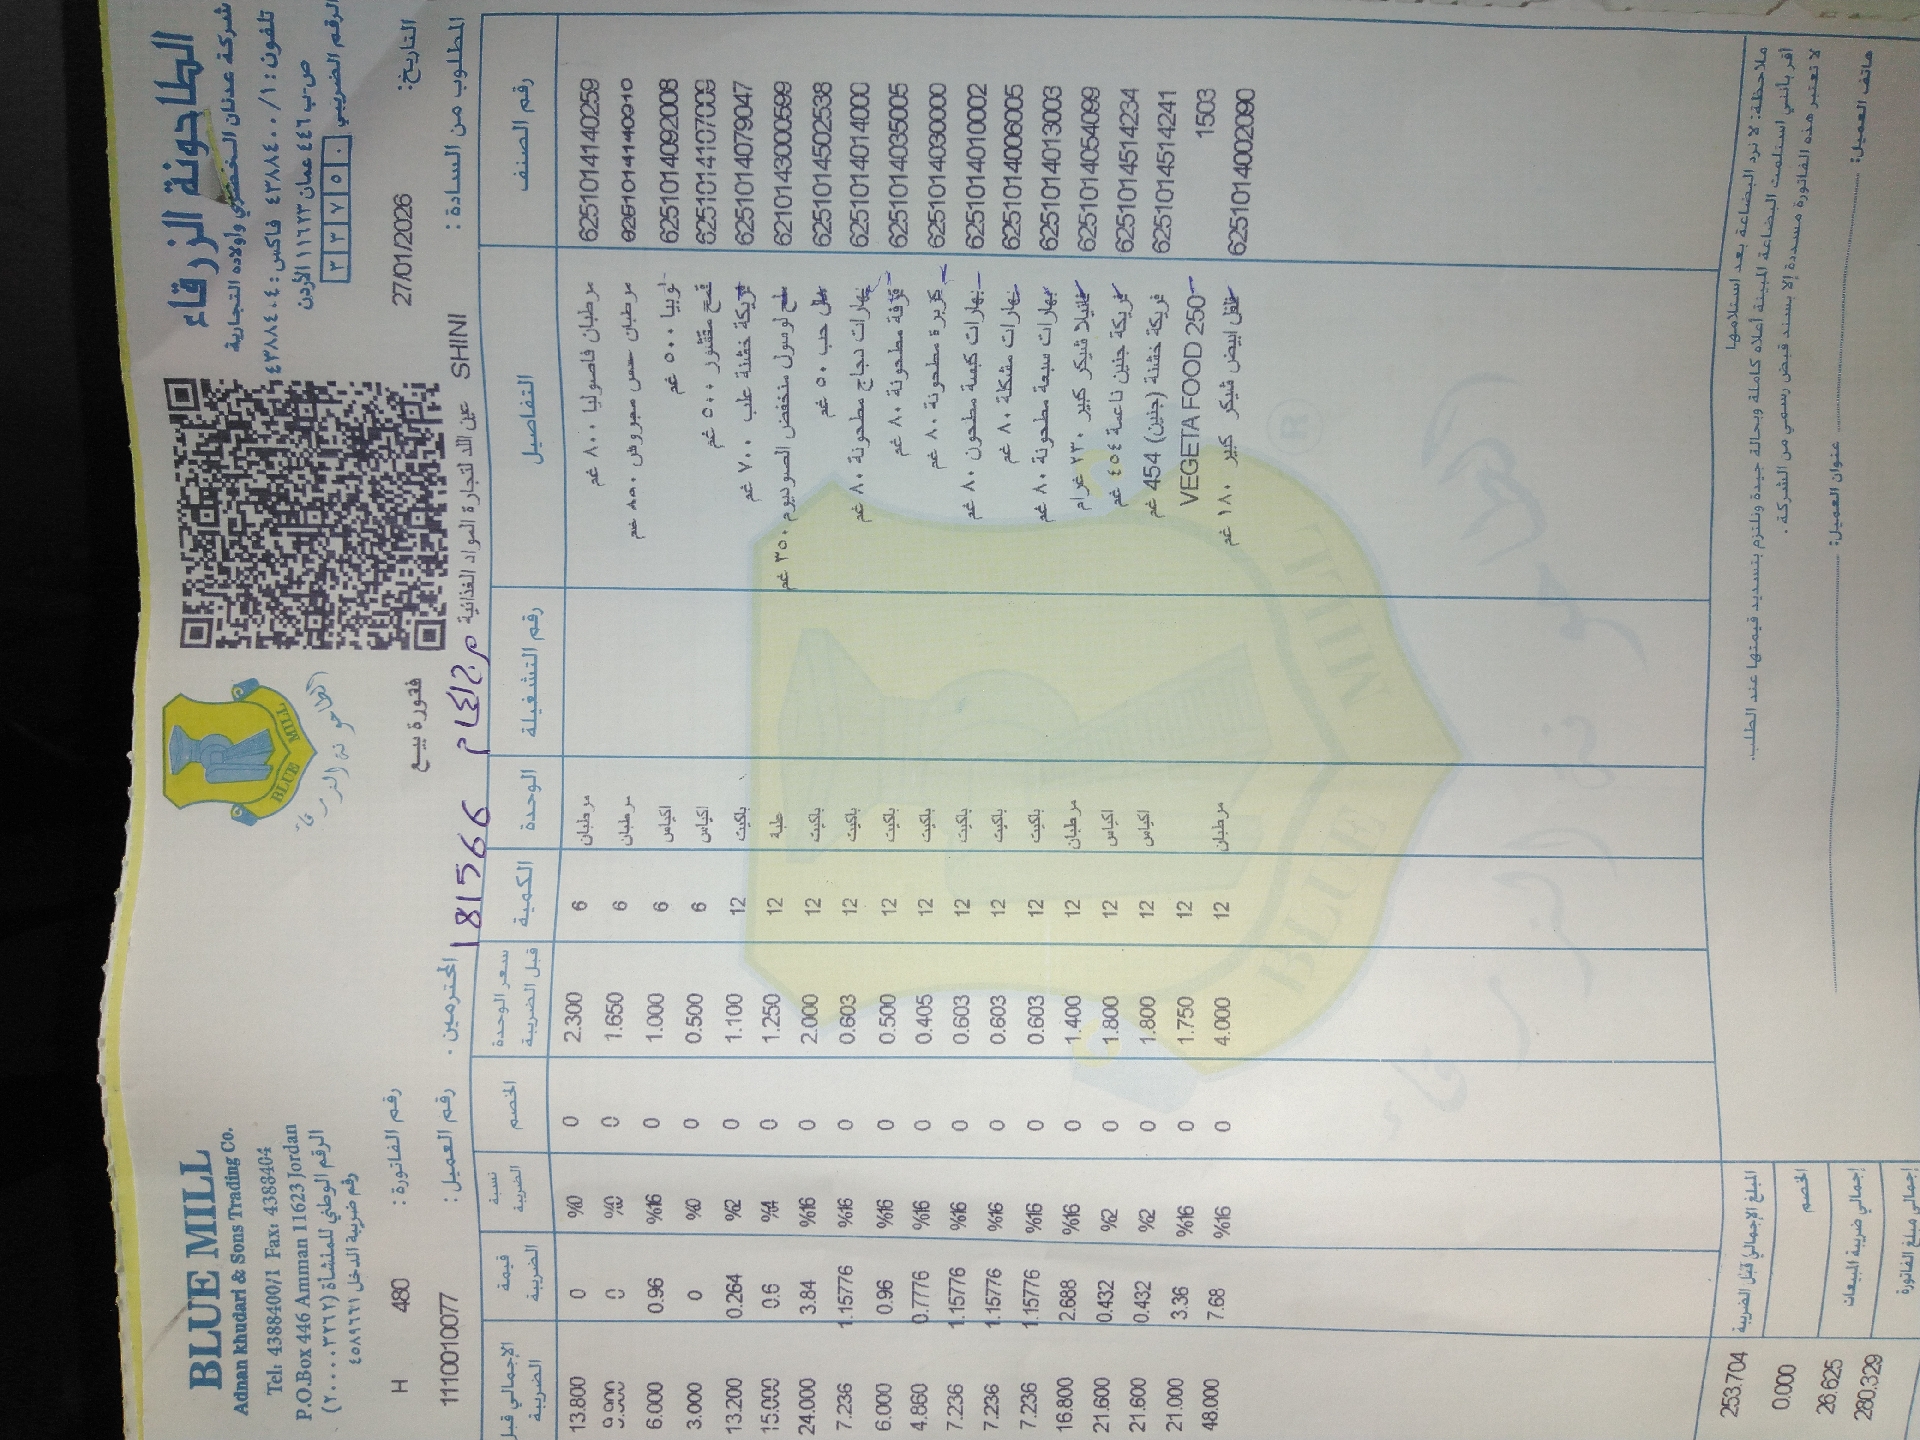 BLUE MILL
Adnan khudari & Sons Trading Co.
Tel: 4388400/1 Fax: 4388404
P.O.Box 446 Amman 11623 Jordan
الرقم الوطني للمنشأة (٢٠٠٠٠٣٢٦٢)
رقم ضريبة الدخل ٤٥٨٩٦٦١
BLUE MILL
الطاحونة الزرقاء
شركة عدنان الخضري واولاده التجارية
تلفون : ٤٣٨٨٤٠٠/١ فاكس : ٤٣٨٨٤٠٤
ص.ب ٤٤٦ عمان ١١٦٢٣ الأردن
الرقم الضريبي ٣ ٣ ٧ ٥ ٠
التاريخ: 27/01/2026
فتورة بيع
رقم الفاتورة : 480 H
المطلوب من السادة : SHINI عين اللد لتجارة المواد الغذائية المحترمين .
181566
رقم العميل : 1110010077
رقم الصنف التفاصيل رقم التشغيلة الوحدة الكمية سعر الوحدة قبل الضريبة الخصم نسبة الضريبة قيمة الضريبة الإجمالي قبل الضريبة
6251014140259 مرطبان فاصوليا ٨٠٠ غم مرطبان 6 2.300 0 %0 0 13.800
6251014140910 مرطبان حمص مجروش ٨٥٠ غم مرطبان 6 1.650 0 %0 0 9.900
6251014092008 لوبيا ٥٠٠ غم اكياس 6 1.000 0 %16 0.96 6.000
6251014107009 قمح مقشور ٥٠٠ غم اكياس 6 0.500 0 %0 0 3.000
6251014079047 فريكة خشنة علب ٧٠٠ غم بكيت 12 1.100 0 %2 0.264 13.200
6210143000599 ملح لوسول منخفض الصوديوم ٣٥٠ غم علبة 12 1.250 0 %4 0.6 15.000
6251014502538 هيل حب ٥٠ غم باكيت 12 2.000 0 %16 3.84 24.000
6251014014000 بهارات دجاج مطحونة ٨٠ غم باكيت 12 0.603 0 %16 1.15776 7.236
6251014035005 قرفة مطحونة ٨٠ غم باكيت 12 0.500 0 %16 0.96 6.000
6251014030000 كزبرة مطحونة ٨٠ غم باكيت 12 0.405 0 %16 0.7776 4.860
6251014010002 بهارات كبسة مطحون ٨٠ غم باكيت 12 0.603 0 %16 1.15776 7.236
6251014006005 بهارات مشكلة ٨٠ غم باكيت 12 0.603 0 %16 1.15776 7.236
6251014013003 بهارات سبعة مطحونة ٨٠ غم باكيت 12 0.603 0 %16 1.15776 7.236
6251014054099 فانيلا شيكر كبير ٢٣٠ غرام مرطبان 12 1.400 0 %16 2.688 16.800
6251014514234 فريكة جنين ناعمة ٤٥٤ غم اكياس 12 1.800 0 %2 0.432 21.600
6251014514241 فريكة خشنة (جنين) 454 غم اكياس 12 1.800 0 %2 0.432 21.600
1503 VEGETA FOOD 250 12 1.750 0 %16 3.36 21.000
6251014002090 فلفل ابيض شيكر كبير ١٨٠ غم مرطبان 12 4.000 0 %16 7.68 48.000
BLUE MILL
®
المبلغ الإجمالي قبل الضريبة 253.704
الخصم 0.000
إجمالي ضريبة المبيعات 26.625
إجمالي مبلغ الفاتورة 280.329
ملاحظة: لا ترد البضاعة بعد استلامها
أقر بأنني استلمت البضاعة المبينة أعلاه كاملة وبحالة جيدة ونلتزم بتسديد قيمتها عند الطلب.
لا تعتبر هذه الفاتورة مسددة إلا بسند قبض رسمي من الشركة .
هاتف العميل: عنوان العميل: